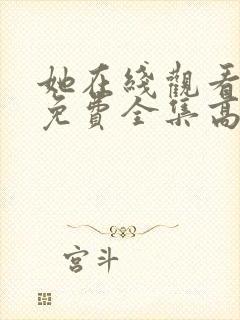 她在綫觀看
免費全集高
宮斗